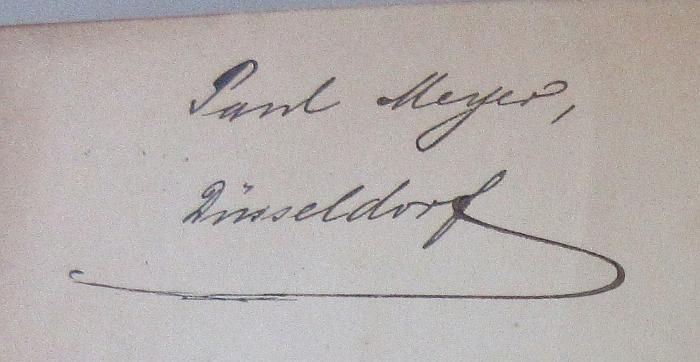 Paul Meyer,
Düsseldorf